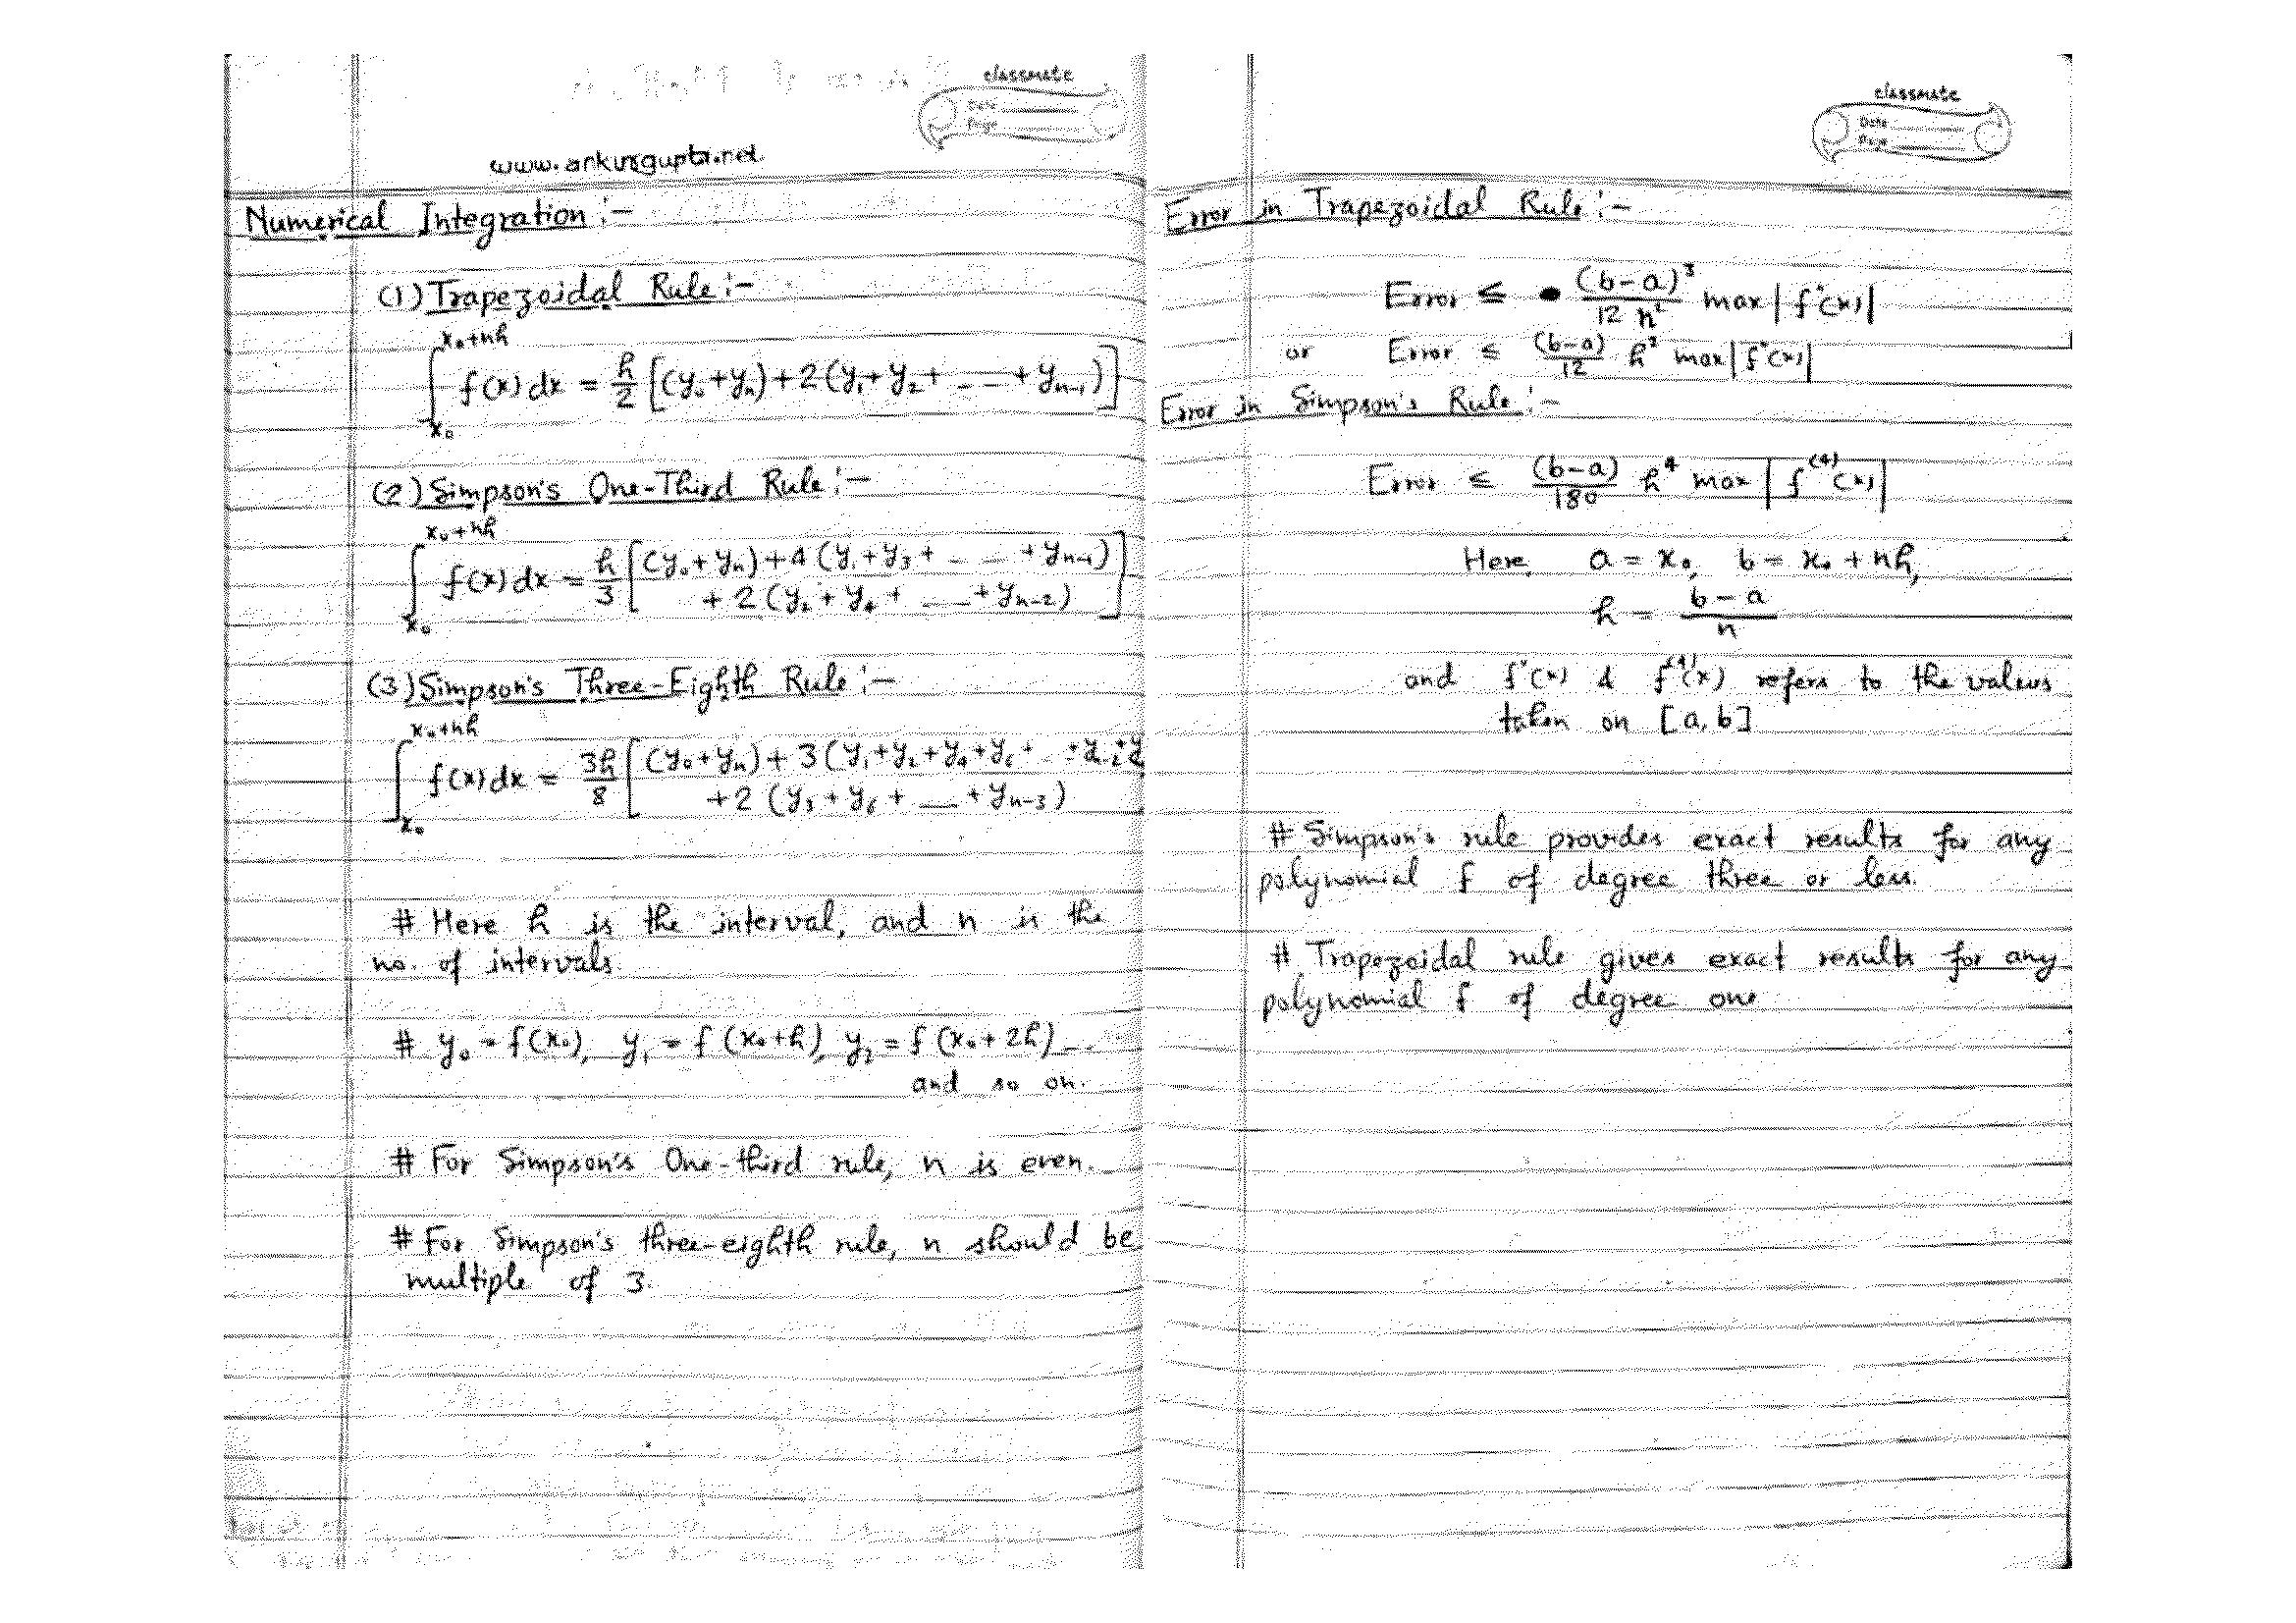 classmate
Date
Page
www.ankurgupta.net
Numerical Integration :-
(1) Trapezoidal Rule :-
∫_{x₀}^{x₀+nh} f(x) dx = h/2 [(y₀+yₙ)+2(y₁+y₂+ ... +yₙ₋₁)]
(2) Simpson's One-Third Rule :-
∫_{x₀}^{x₀+nh} f(x) dx = h/3 [(y₀+yₙ)+4(y₁+y₃+ ... +yₙ₋₁)
+ 2(y₂+y₄+ ... +yₙ₋₂)]
(3) Simpson's Three-Eighth Rule :-
∫_{x₀}^{x₀+nh} f(x) dx = 3h/8 [(y₀+yₙ)+3(y₁+y₂+y₄+y₅+ ...
+2(y₃+y₆+ ... +yₙ₋₃)
# Here h is the interval, and n is the
no. of intervals.
# y₀ = f(x₀), y₁ = f(x₀+h), y₂ = f(x₀+2h) ...
and so on.
# For Simpson's One-third rule, n is even.
# For Simpson's three-eighth rule, n should be
multiple of 3.
classmate
Date
Page
Error in Trapezoidal Rule :-
Error ≤ (b-a)³/12n² max |f"(x)|
or Error ≤ (b-a)/12 h² max |f"(x)|
Error in Simpson's Rule :-
Error ≤ (b-a)/180 h⁴ max |f⁽⁴⁾(x)|
Here, a = x₀, b = x₀+nh,
h = (b-a)/n
and f"(x) & f⁽⁴⁾(x) refers to the values
taken on [a, b]
# Simpson's rule provides exact results for any
polynomial f of degree three or less.
# Trapezoidal rule gives exact results for any
polynomial f of degree one